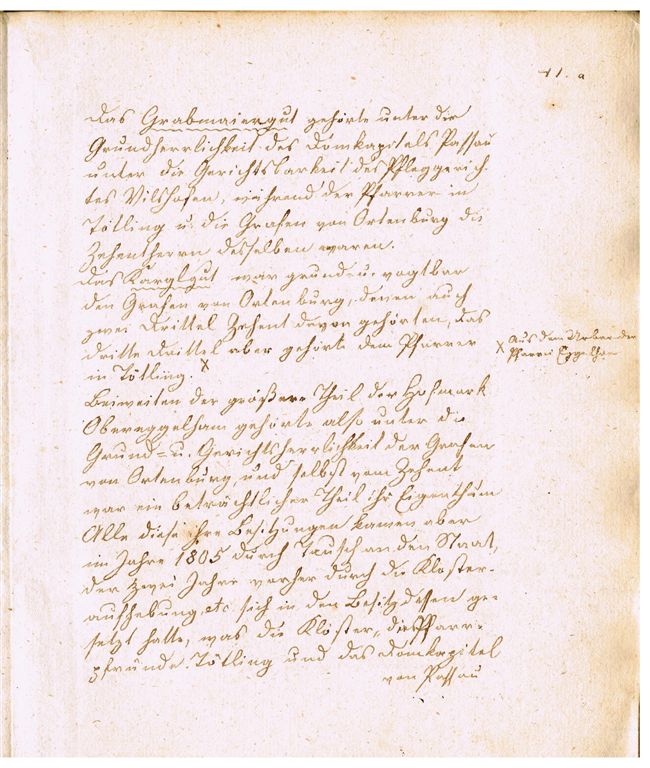 11. a
Das Grabmaiergut gehörte unter die
Grundherrlichkeit des Domkapitels Passau
unter die Gerichtsbarkeit des Pfleggerich-
tes Vilshofen, während der Pfarrer in
Tötling u. die Grafen von Ortenburg die
Zehentherrn desselben waren.
Das Karglgut war grund- u. vogtbar
den Grafen von Ortenburg, denen auch
zwei Drittel Zehent davon gehörten, das
dritte Drittel aber gehörte dem Pfarrer
in Tötling. x
x Aus dem Urbar der
Pfarrei Eggelham
Beiweiten der größere Theil der Hofmark
Obereggelham gehörte also unter die
Grund- u. Gerichtsherrlichkeit der Grafen
von Ortenburg, und selbst vom Zehent
war ein beträchtlicher Theil ihr Eigenthum
Alle diese ihre Besitzungen kamen aber
im Jahre 1805 durch Tausch an den Staat,
der zwei Jahre vorher durch die Kloster-
aufhebung etc sich in den Besitz dessen ge-
setzt hatte, was die Klöster, die Pfarr-
pfründe Tötling und das Domkapitel
von Passau